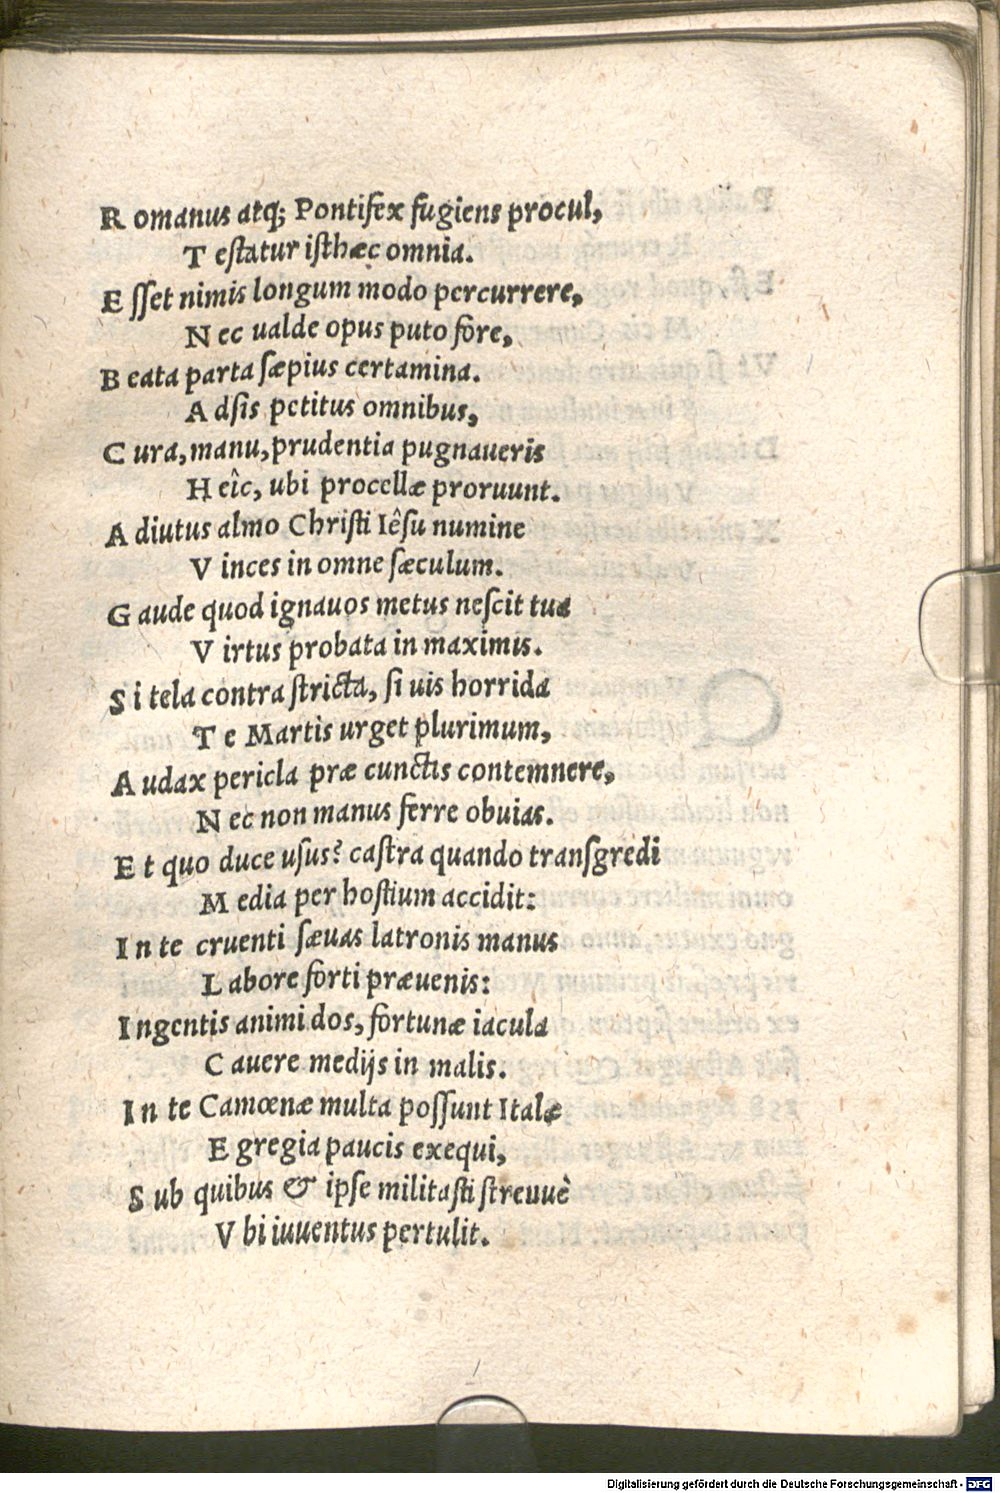 Romanus atq; Pontifex fugiens procul,
Testatur isthæc omnia.
Esset nimis longum modo percurrere,
Nec ualde opus puto fore,
Beata parta sæpius certamina.
Adsis petitus omnibus,
Cura, manu, prudentia pugnaueris
Heîc, ubi procellæ proruunt.
Adiutus almo Christi Iêsu numine
Vinces in omne sæculum.
Gaude quod ignauos metus nescit tua
Virtus probata in maximis.
Si tela contra stricta, si uis horrida
Te Martis urget plurimum,
Audax pericla præ cunctis contemnere,
Nec non manus ferre obuias.
Et quo duce usus? castra quando transgredi
Media per hostium accidit:
In te cruenti sæuas latronis manus
Labore forti præuenis:
Ingentis animi dos, fortunæ iacula
Cauere medijs in malis.
In te Camœnæ multa possunt Italæ
Egregia paucis exequi,
Sub quibus & ipse militasti strenuè
Vbi iuuentus pertulit.
Digitalisierung gefördert durch die Deutsche Forschungsgemeinschaft - DFG